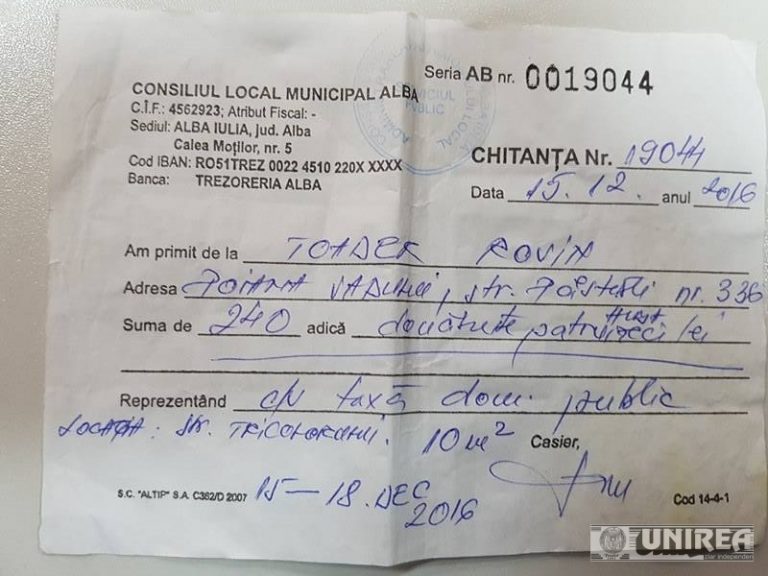 CONSILIUL LOCAL MUNICIPAL ALBA
C.Î.F.: 4562923; Atribut Fiscal: -
Sediul: ALBA IULIA, jud. Alba
Calea Moților, nr. 5
Cod IBAN: RO51TREZ 0022 4510 220X XXXX
Banca: TREZORERIA ALBA
Seria AB nr. 0019044
CHITANȚA Nr. 19044
Data 15.12. anul 2016
Am primit de la TOADER
Adresa POIANA VADULUI, str. nr. 336
Suma de 240 adică lei
Reprezentând c/v taxă dom. public
str. TRICOLORULUI. 10 m² Casier,
S.C. "ALTIP" S.A. C362/D 2007
15-18.DEC
2016
Cod 14-4-1
UNIREA
ziar independent